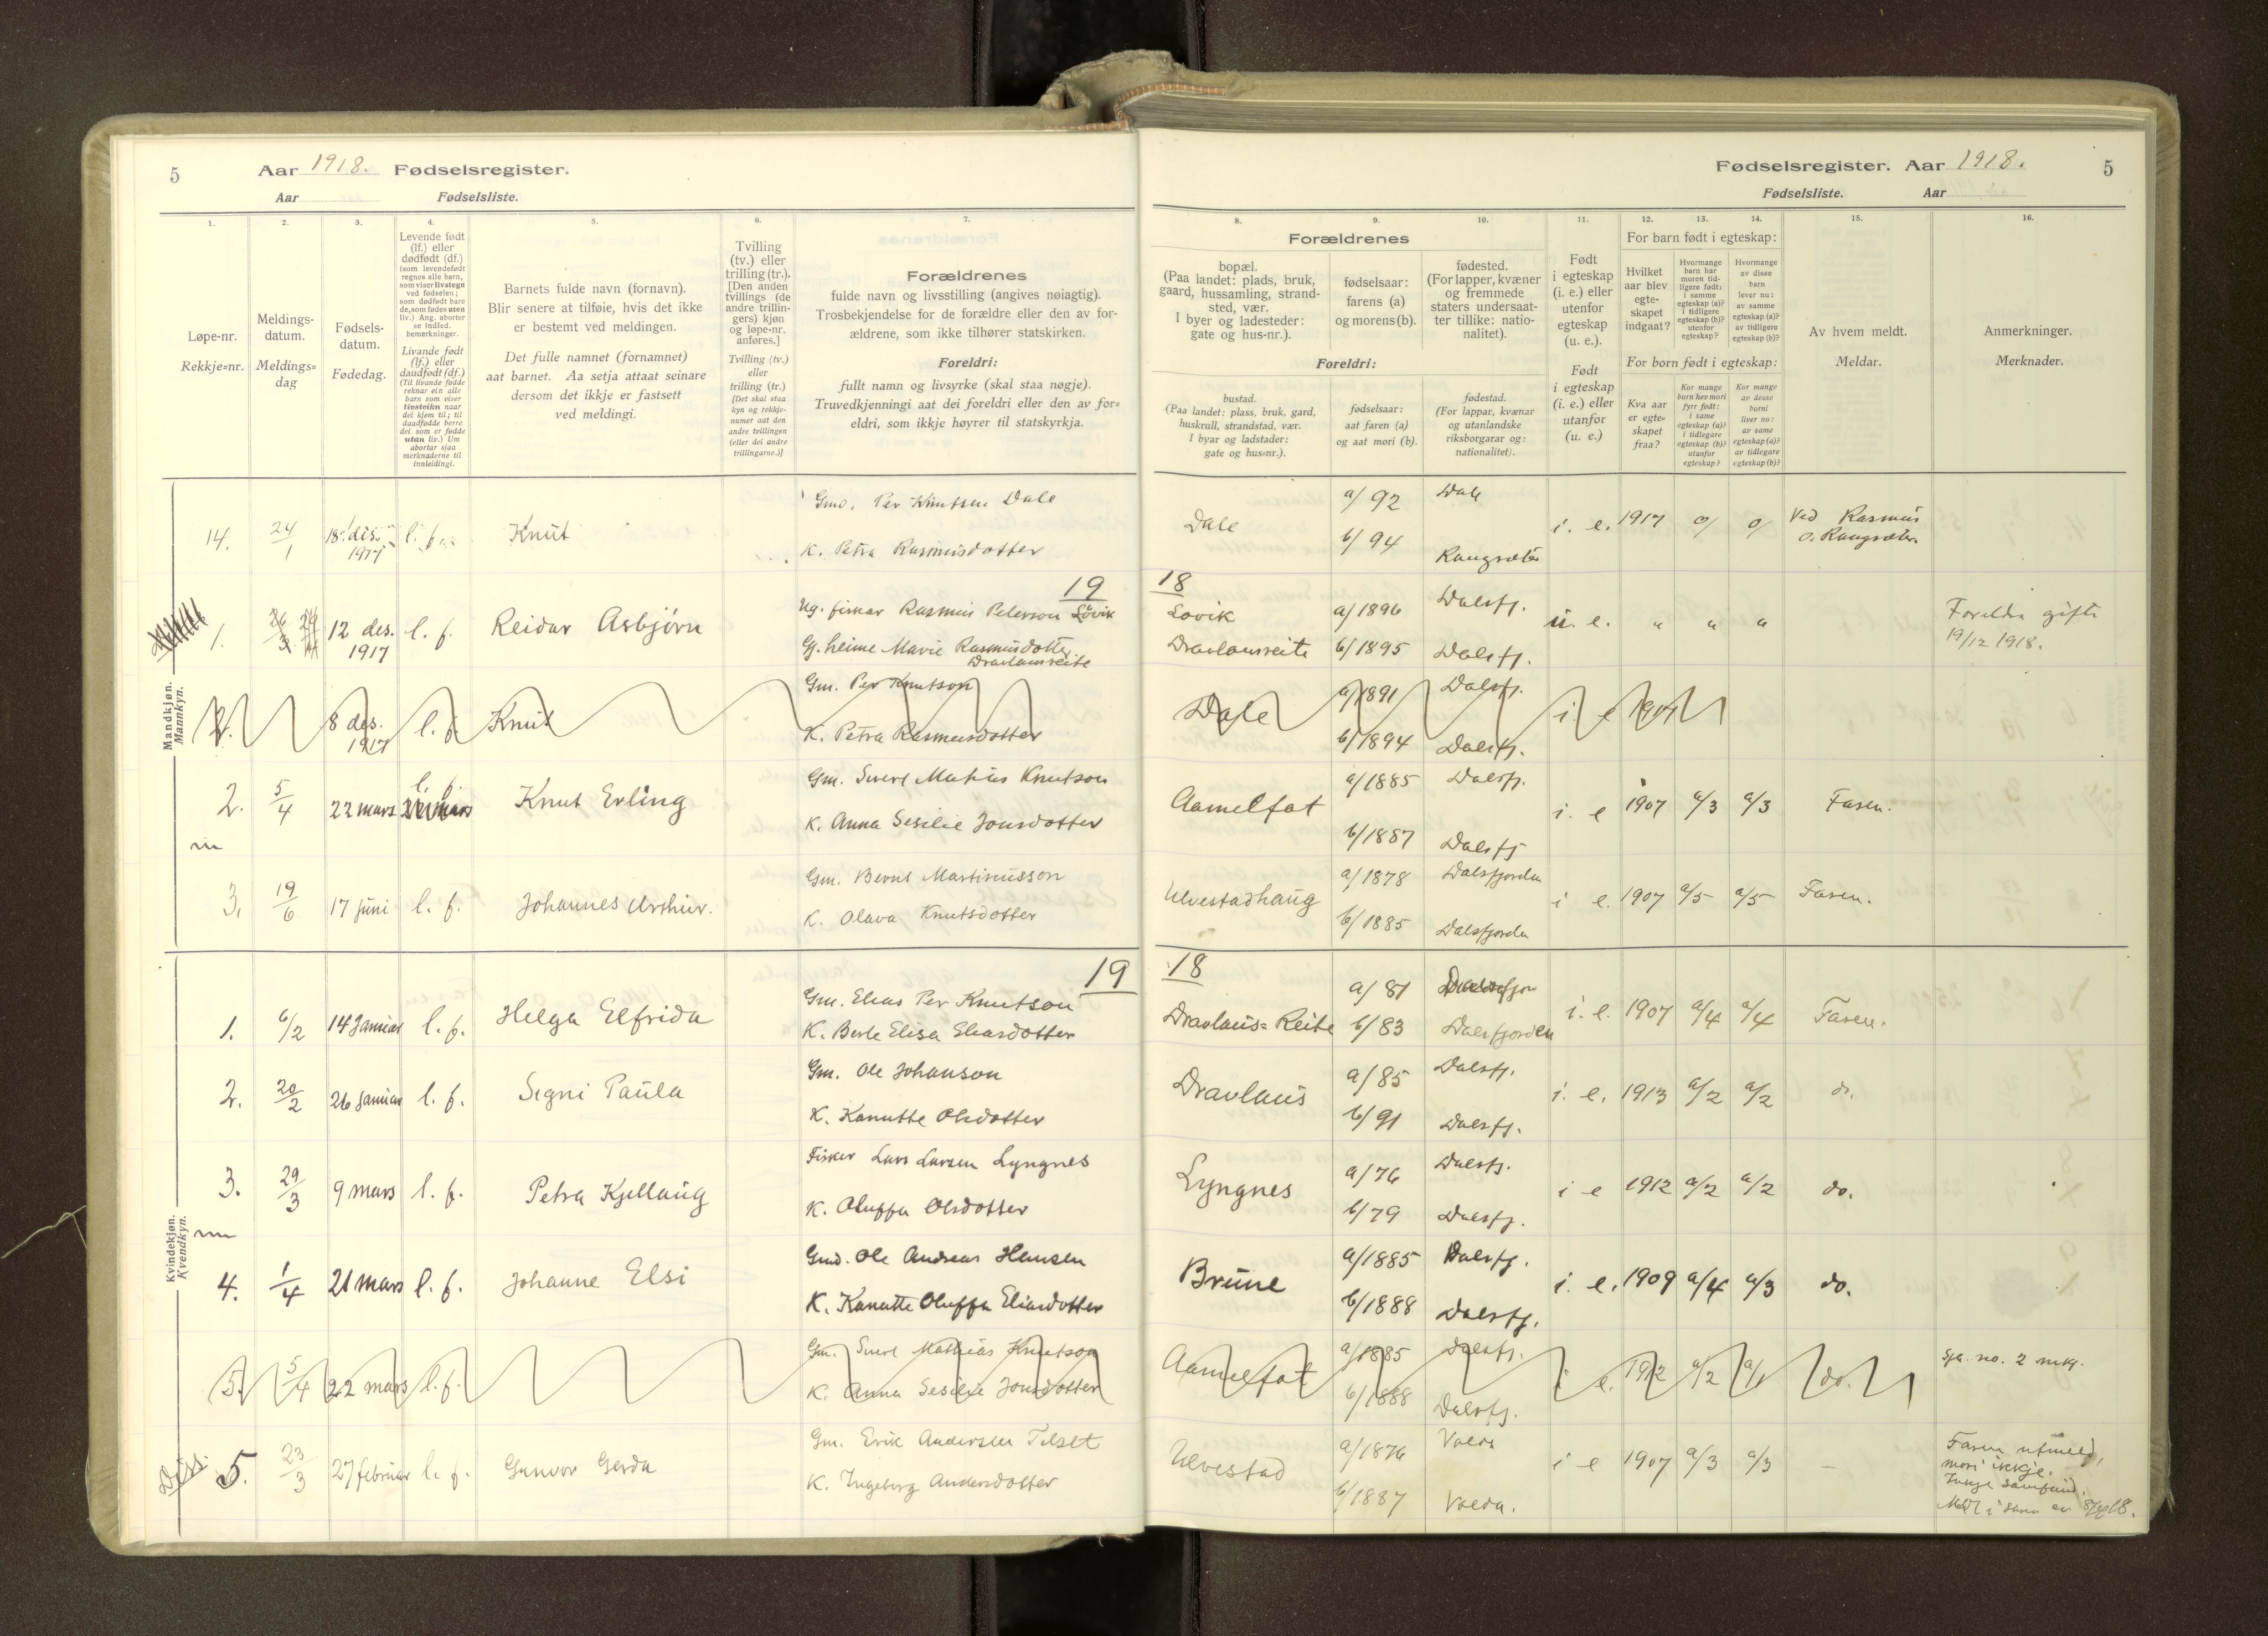 5 Aar 1918. Fødselsregister.
Aar Fødselsliste.
Fødselsregister. Aar 1918. 5
Fødselsliste. Aar
1. 2. 3. 4. 5. 6. 7.
Løpe-nr.
Rekkje=nr.
Meldings-
datum.
Meldings=
dag
Fødsels-
datum.
Fødedag.
Levende født
(lf.) eller
dødfødt (df.)
(som levendefødt
regnes alle barn,
som viser livstegn
ved fødselen;
som dødfødt bare
de, som fødes uten
liv.) Ang. aborter
se indled.
bemerkninger.
Livande født
(lf.) eller
daudfødt (df.)
(Til livande fødde
reknar ein alle
barn som viser
livsteikn naar
dei kjem til; til
daudfødde berre
dei som er fødde
utan liv.) Um
abortar sjaa
merknaderne til
innleidingi.
Barnets fulde navn (fornavn).
Blir senere at tilføie, hvis det ikke
er bestemt ved meldingen.
Det fulle namnet (fornamnet)
aat barnet. Aa setja attaat seinare
dersom det ikkje er fastsett
ved meldingi.
Tvilling
(tv.) eller
trilling (tr.).
[Den anden
tvillings (de
andre trillin-
gers) kjøn
og løpe-nr.
anføres.]
Tvilling (tv.)
eller
trilling (tr.)
[Det skal staa
kyn og rekkje-
numer aat den
andre tvillingen
(eller dei andre
trillingarne.)]
Forældrenes
fulde navn og livsstilling (angives nøiagtig).
Trosbekjendelse for de forældre eller den av for-
ældrene, som ikke tilhører statskirken.
Foreldri:
fullt namn og livsyrke (skal staa nøgje).
Truvedkjenningi aat dei foreldri eller den av for=
eldri, som ikkje høyrer til statskyrkja.
8. 9. 10. 11. 12. 13. 14. 15. 16.
Forældrenes
bopæl.
(Paa landet: plads, bruk,
gaard, hussamling, strand-
sted, vær.
I byer og ladesteder:
gate og hus-nr.).
fødselsaar:
farens (a)
og morens (b).
fødested.
(For lapper, kvæner
og fremmede
staters undersaat-
ter tillike: natio-
nalitet).
Foreldri:
bustad.
(Paa landet: plass, bruk, gard,
huskrull, strandstad, vær.
I byar og ladstader:
gate og hus=nr.).
fødselsaar:
aat faren (a)
og aat mori (b).
fødestad.
(For lappar, kvænar
og utanlandske
riksborgarar og:
nationalitet).
Født
i egteskap
(i. e.) eller
utenfor
egteskap
(u. e.).
Født
i egteskap
(i. e.) eller
utanfor
(u. e.)
For barn født i egteskap:
Hvilket
aar blev
egte-
skapet
indgaat?
Hvormange
barn har
moren tid-
ligere født:
i samme
egteskap (a)?
i tidligere
egteskap (b)?
utenfor
egteskap?
Hvormange
av disse
barn
lever nu:
av samme
egteskap (a)?
av tidligere
egteskap (b)?
For born født i egteskap:
Kva aar
er egte-
skapet
fraa?
Kor mange
born hev mori
fyrr født:
i same
egteskap (a)?
i tidlegare
egteskap (b)?
utanfor
egteskap?
Kor mange
av desse
borni
liver no:
av same
egteskap (a)?
av tidlegare
egteskap (b)?
Av hvem meldt.
Meldar.
Anmerkninger.
Merknader.
Mandkjøn.
Mannkyn.
14. 24/1 18. des. 1917 l. f. Knut
Gmd. Per Knutsen Dale
K. Petra Rasmusdotter
Dale a/ 92 Dale
b/ 94 Rangsæter
i. e. 1917 0/ 0/ Ved Rasmus
O. Rangsæter.
19 18
1. 12 des. 1917 l. f. Reidar Asbjørn
Ug. fiskar Rasmus Peterson Løvik
G. heime Marie Rasmusdotter
Dravlausreite
Løvik a/1896 Dalsfj.
Dravlausreite b/1895 Dalsfj.
u. e. " " "
Foreldra gifte
19/12 1918.
2. 8 des. 1917 l. f. Knut
Gm. Per Knutson
K. Petra Rasmusdotter
Dale a/1891 Dalsfj.
b/1894 Dalsfj.
i e 1917
2. 5/4 22 mars l. f. Knut Erling
Gm. Sivert Matias Knutson
K. Anna Sesilie Jonsdotter
Aamelfot a/1885 Dalsfj.
b/1887 Dalsfj
i. e 1907 a/3 a/3 Faren.
m
3. 19/6 17 juni l. f. Johannes Arthur.
Gm. Bernt Martinusson
K. Olava Knutsdotter
Ulvestadhaug a/1878 Dalsfjorden
b/1885 Dalsfjorden
i e. 1907 a/5 a/5 Faren.
Kvindekjøn.
Kvendkyn.
19 18
1. 6/2 14 Januar l. f. Helga Elfrida
Gm. Elias Per Knutson
K. Berte Elisa Eliasdotter
Dravlaus=Reite a/ 81
b/ 83 Dalsfjorden
i. e. 1907 a/4 a/4 Faren.
2. 20/2 26 januar l. f. Signi Paula
Gm. Ole Johanson
K. Kanutte Olsdotter
Dravlaus a/85 Dalsfj.
b/91 Dalsfj.
i. e. 1913 a/2 a/2 do.
3. 29/3 9 mars l. f. Petra Kjellaug
Fisker Lars Larsen Lyngnes
K. Oluffa Olsdotter
Lyngnes a/76 Dalsfj.
b/79 Dalsfj.
i e 1912 a/2 a/2 do.
m
4. 1/4 21 mars l. f. Johanne Elsi
Gmd. Ole Andreas Hansen
K. Kanutte Oluffa Eliasdotter
Brune a/1885 Dalsfj.
b/1888 Dalsfj.
i. e. 1909 a/4 a/3 do.
5. 5/4 22 mars l. f.
Gm. Sivert Mathias Knutson
K. Anna Sesilie Jonsdotter
Aamelfot a/1885 Dalsfj.
b/1888 Dalsfj.
i e. 1912 a/2 a/1 do.
sja no. 2 mk.
Diss. 5. 23/3 27 februar l. f. Gunvor Gerda
Gm. Erik Andersen Tilset
K. Ingeborg Andersdotter
Ulvestad a/1876 Volda
b/1887 Volda.
i e 1907 a/3 a/3 —
Faren utmeld,
mori ikkje.
Inkje samfund.